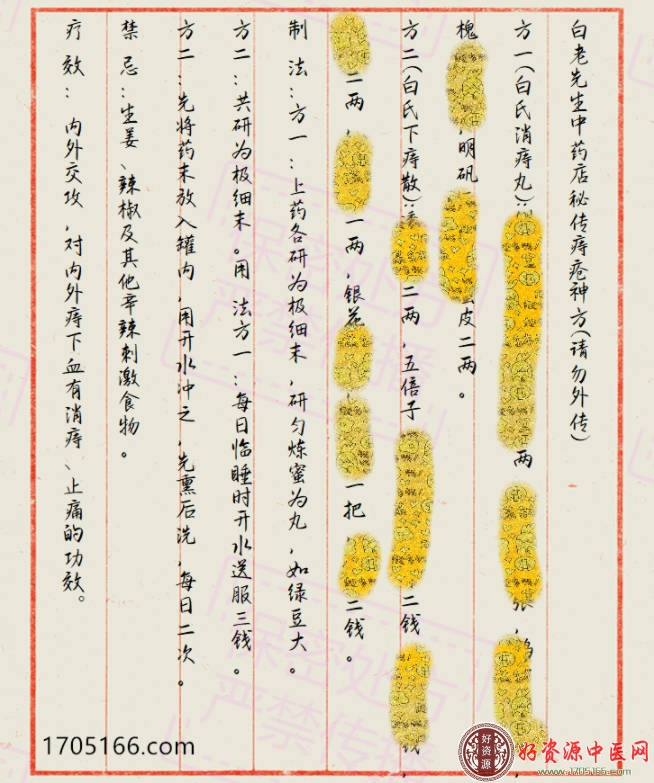 白老先生中药店秘传痔疮神方(请勿外传)
方一(白氏消痔丸):两,张,
槐,明矾皮二两。
方二(白氏下痔散):二两,五倍子二钱钱,
二两,一两,银花一把,二钱。
制法:方一:上药各研为极细末,研匀炼蜜为丸,如绿豆大。
方二:共研为极细末。用法方一:每日临睡时开水送服三钱。
方二:先将药末放入罐内,用开水冲之,先熏后洗,每日二次。
禁忌:生姜、辣椒及其他辛辣刺激食物。
疗效:内外交攻,对内外痔下血有消痔、止痛的功效。
保密处方
严禁传播
保密处方
严禁传播
1705166.com
好资源
好资源中医网
www.1705166.com